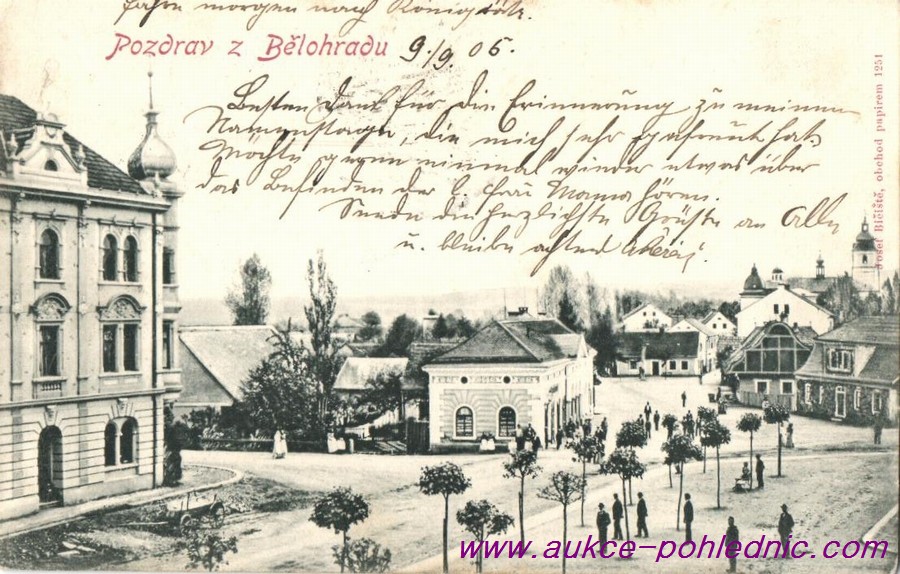 fahre morgen nach Königgrätz.
Pozdrav z Bělohradu 9./9. 06.
Besten Dank für die Erinnerung zu meinem
Namenstage, die mich sehr gefreut hat.
Möchte gegen einmal wieder etwas über
das Befinden der l. Frau Mama hören.
Sende die herzlichste Grüße an Alle
u. bleibe achtend
Josef Blčiště, obchod papírem 1251
www.aukce-pohlednic.com